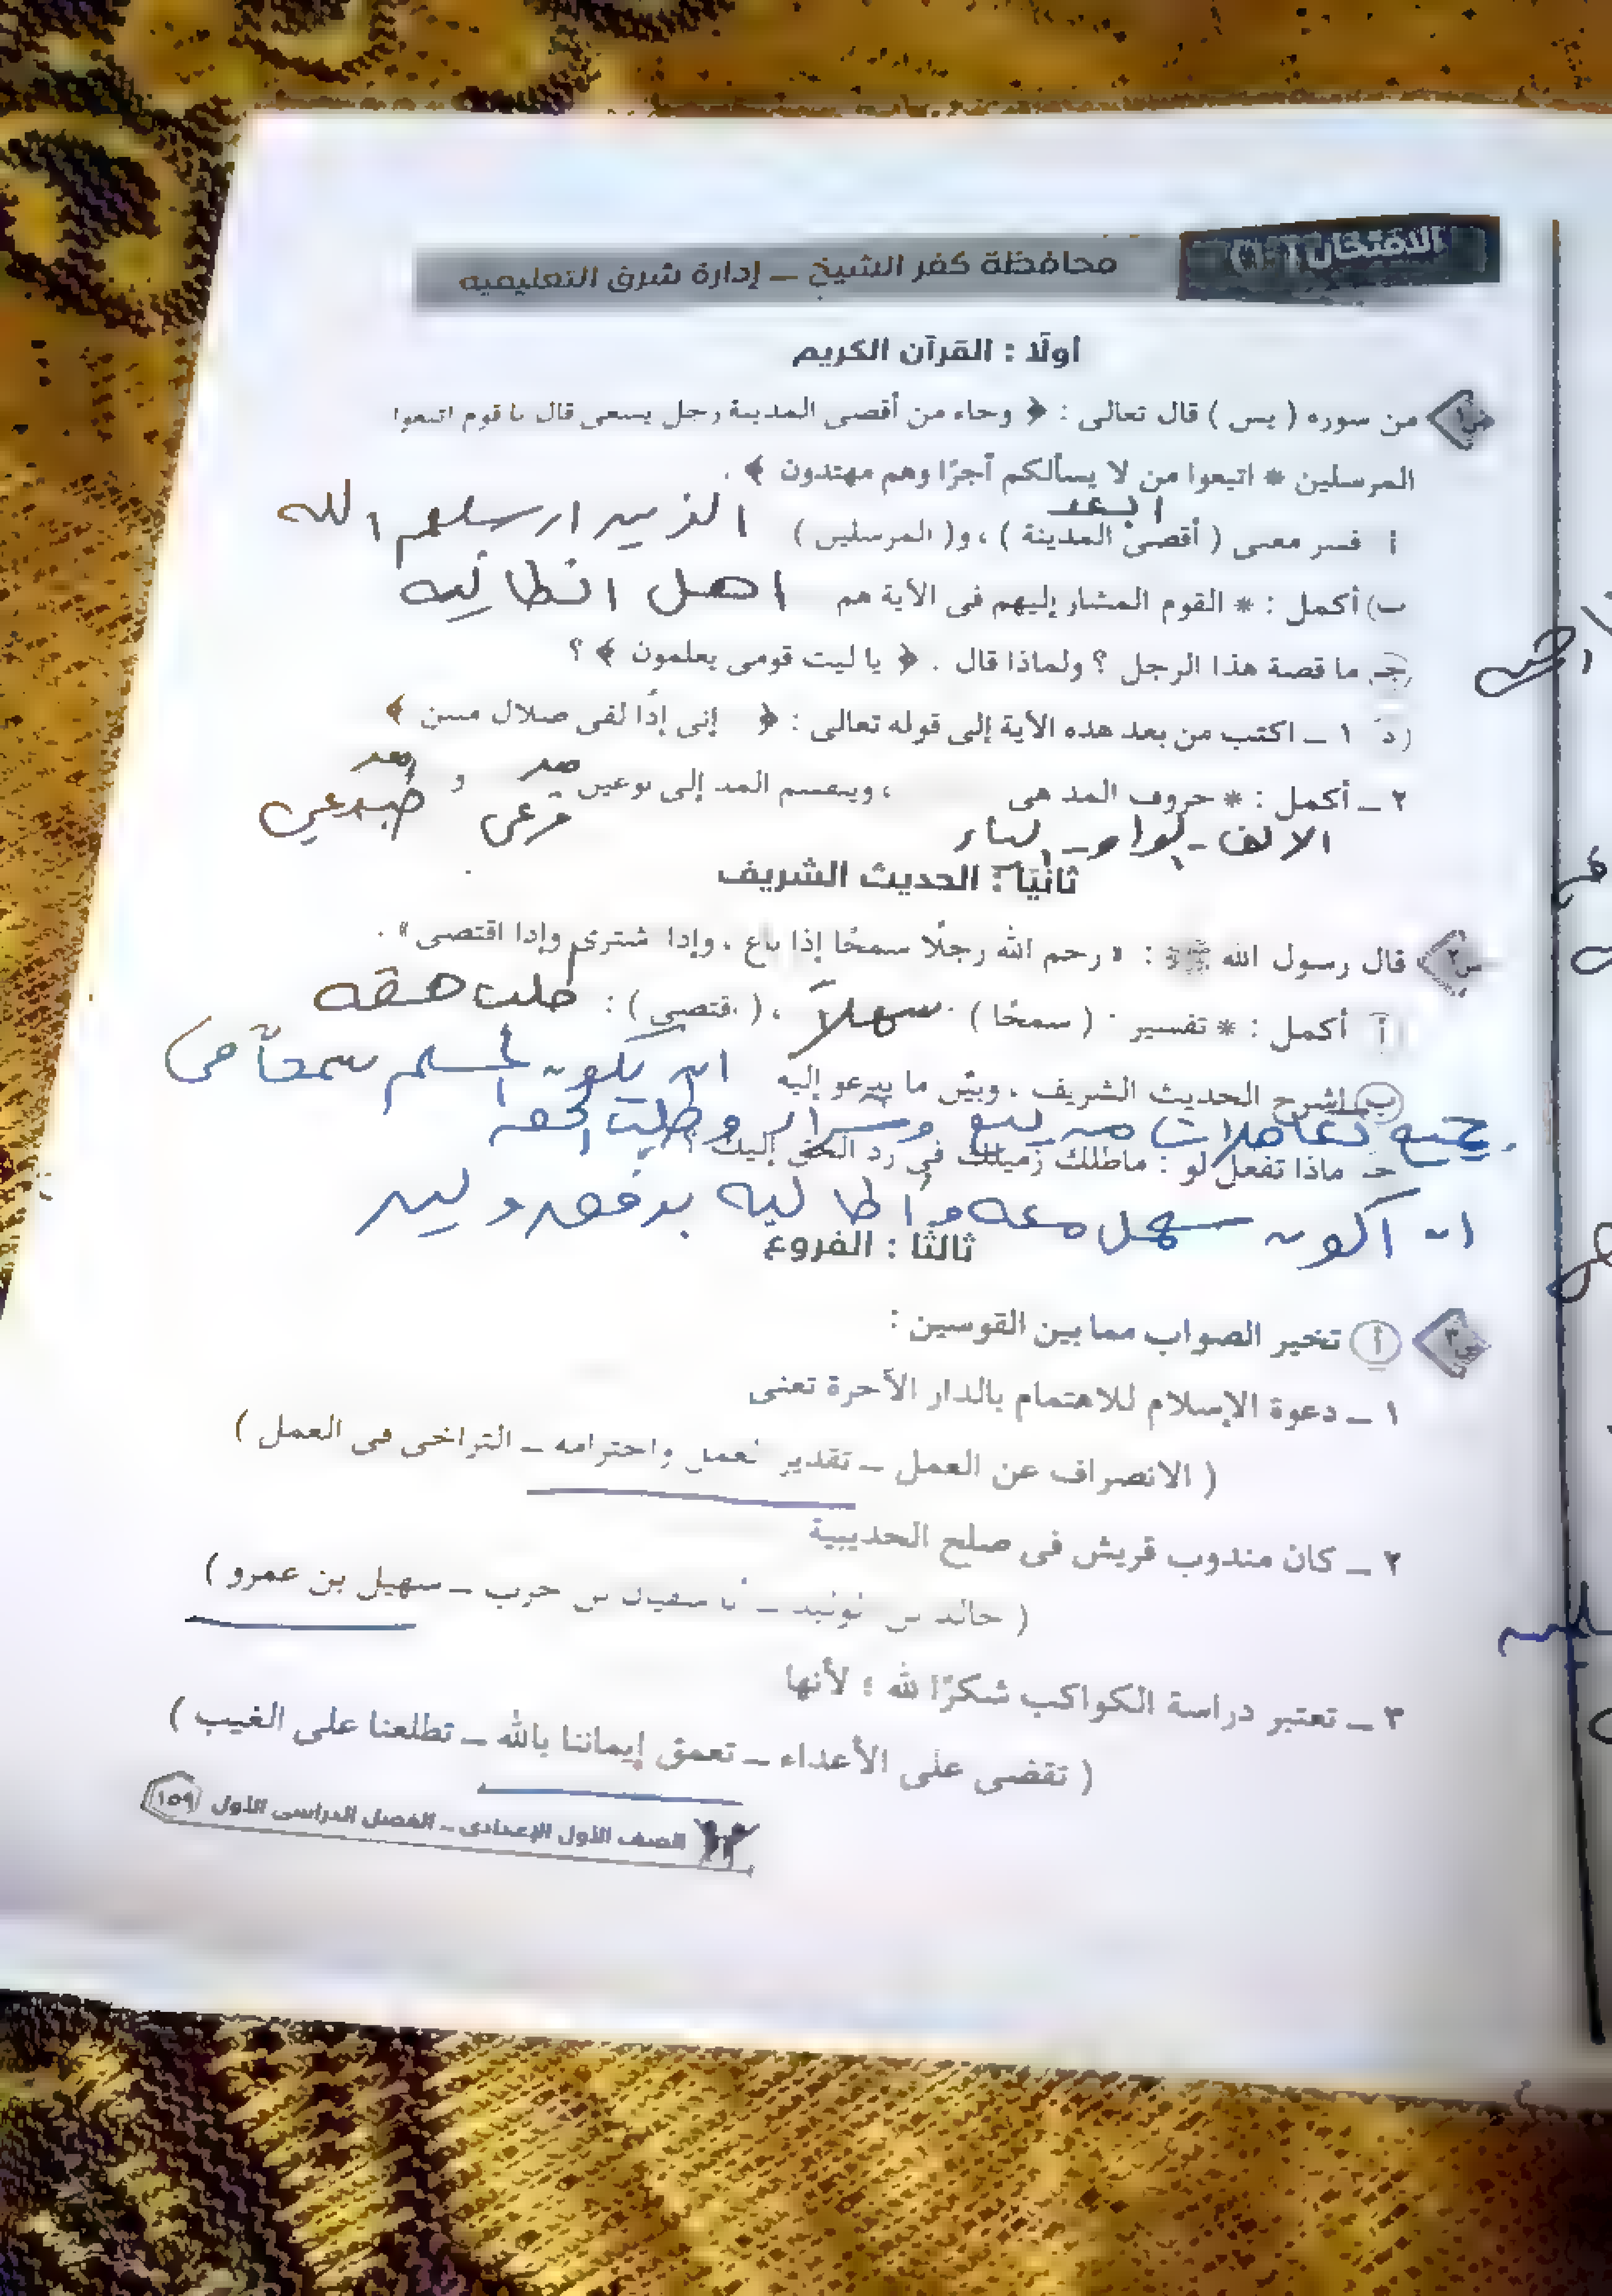 الامتحان
محافظة كفر الشيخ – إدارة شرق التعليمية
أولًا : القرآن الكريم
س١ من سورة ( يس ) قال تعالى : ﴿ وجاء من أقصى المدينة رجل يسعى قال يا قوم اتبعوا
المرسلين * اتبعوا من لا يسألكم أجرًا وهم مهتدون ﴾ .
ابعد
أ فسر معنى ( أقصى المدينة ) ، و( المرسلين ) الذين ارسلهم الله
ب) أكمل : * القوم المشار إليهم فى الآية هم اهل انطاكيه
جـ ما قصة هذا الرجل ؟ ولماذا قال . ﴿ يا ليت قومى يعلمون ﴾ ؟
د ١ – اكتب من بعد هذه الآية إلى قوله تعالى : ﴿ إنى إذًا لفى ضلال مبين ﴾
٢ – أكمل : * حروف المد هى ، وينقسم المد إلى نوعين مد و مد
فرعى طبيعي
الالف - الواو - الياء
ثانيًا : الحديث الشريف
س٢ قال رسول الله ﷺ : « رحم الله رجلًا سمحًا إذا باع ، وإذا اشترى وإذا اقتضى » .
أ أكمل : * تفسير ( سمحًا ) سهلاً ، ( اقتضى ) : طلب حقه
ب اشرح الحديث الشريف ، وبيّن ما يدعو إليه ان يكون المسلم سمحاً فى
جميع تعاملات من بيع وشراء وطلب الحق
جـ ماذا تفعل لو : ماطلك زميلك فى رد الحق إليك ؟
ان اكون سهل معه و اطالبه برفق و لين
ثالثًا : الفروع
س٣ أ تخير الصواب مما بين القوسين :
١ – دعوة الإسلام للاهتمام بالدار الآخرة تعنى
( الانصراف عن العمل – تقدير العمل واحترامه – التراخى فى العمل )
٢ – كان مندوب قريش فى صلح الحديبية
( خالد بن الوليد – أبا سفيان بن حرب – سهيل بن عمرو )
٣ – تعتبر دراسة الكواكب شكرًا لله ؛ لأنها
( تقضى على الأعداء – تعمق إيماننا بالله – تطلعنا على الغيب )
الصف الأول الإعدادى – الفصل الدراسى الأول ١٥٩